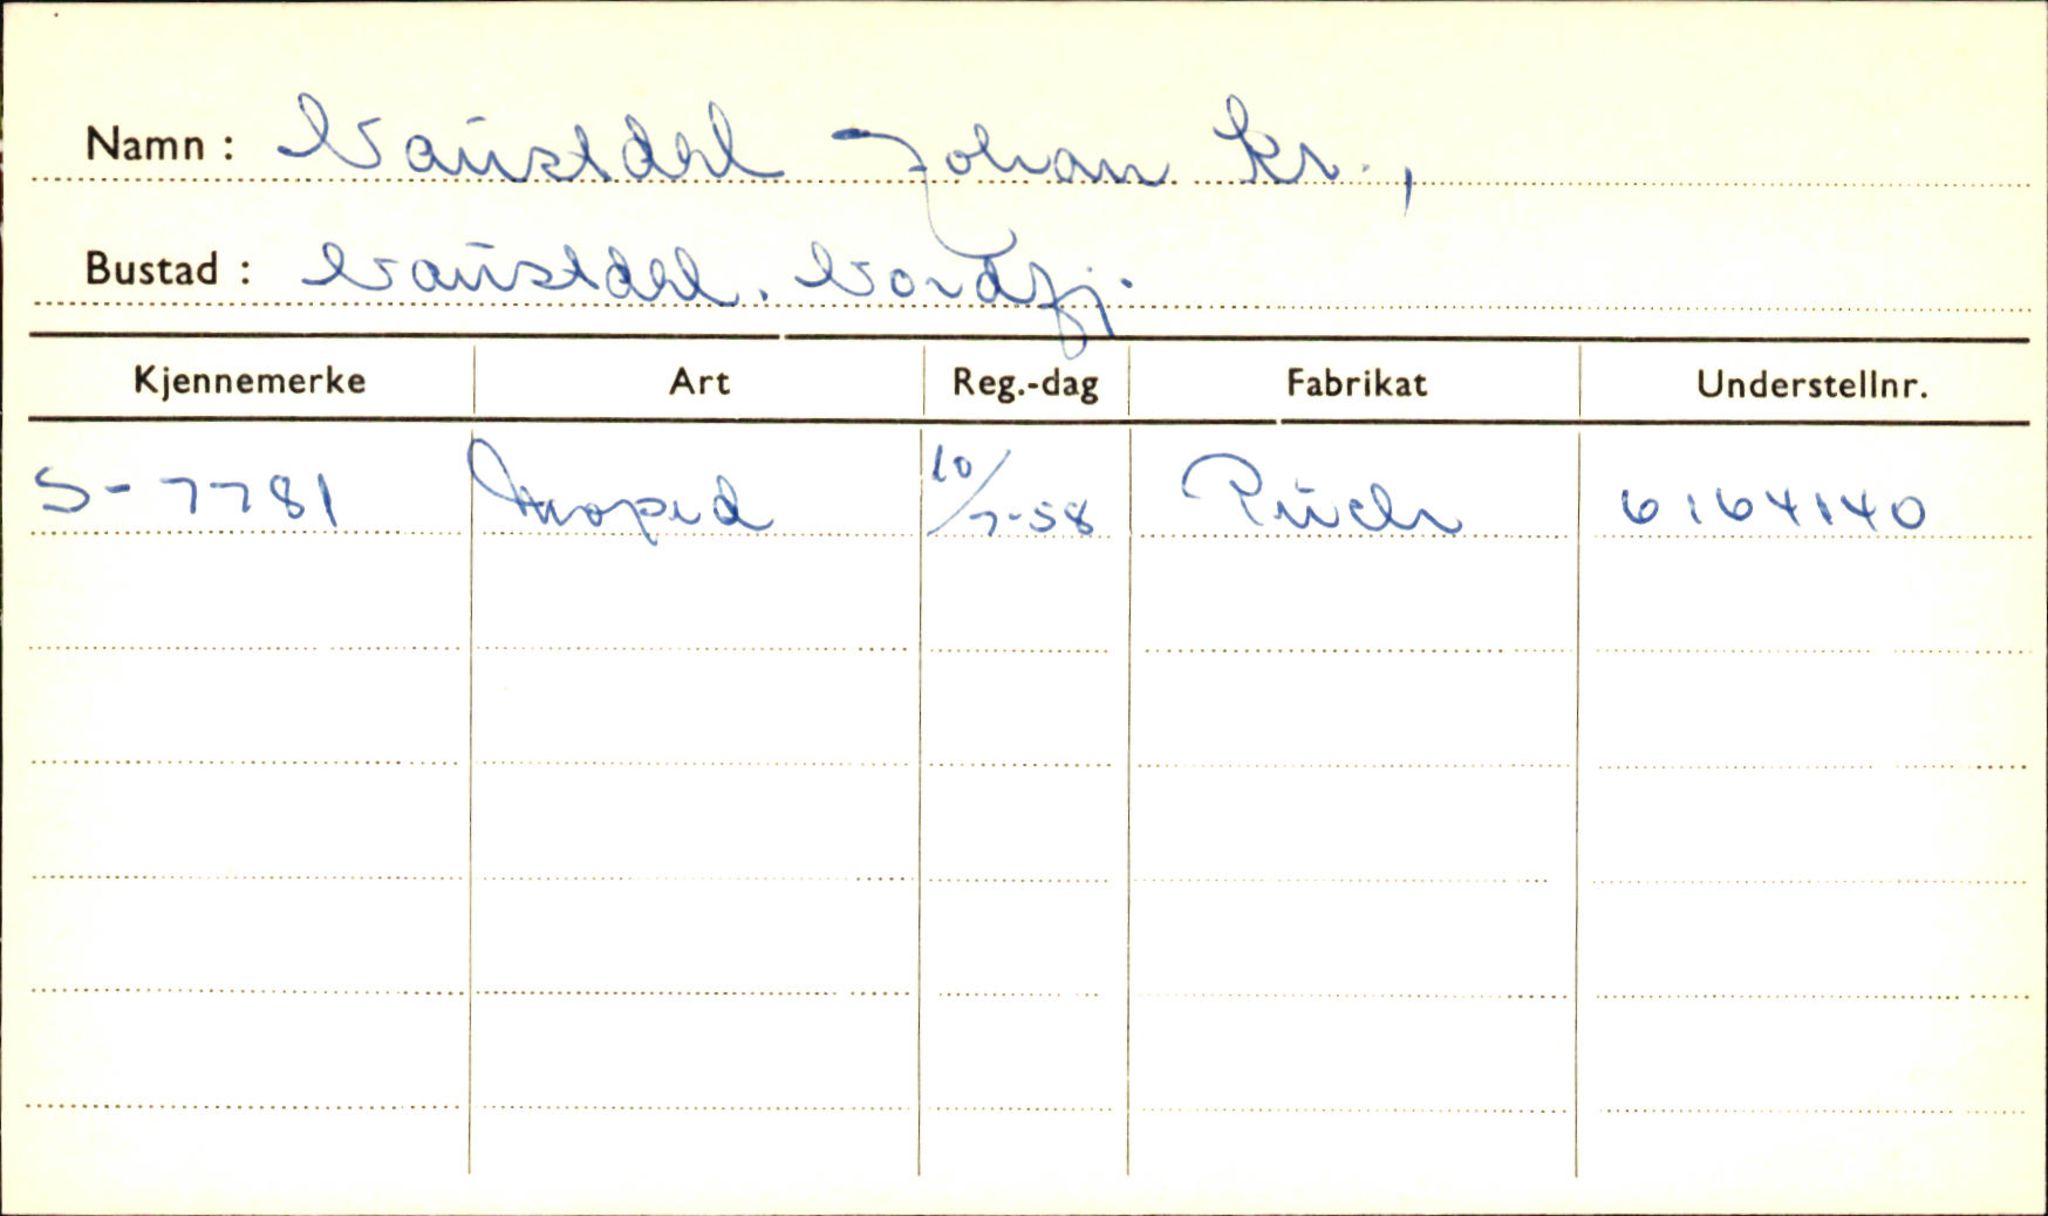 Namn : Naustdal Johan Kr.,
Bustad : Naustdal. Nordfj.
Kjennemerke Art Reg.-dag Fabrikat Understellnr.
S-7781 Moped 10/7-58 Puch 6164140